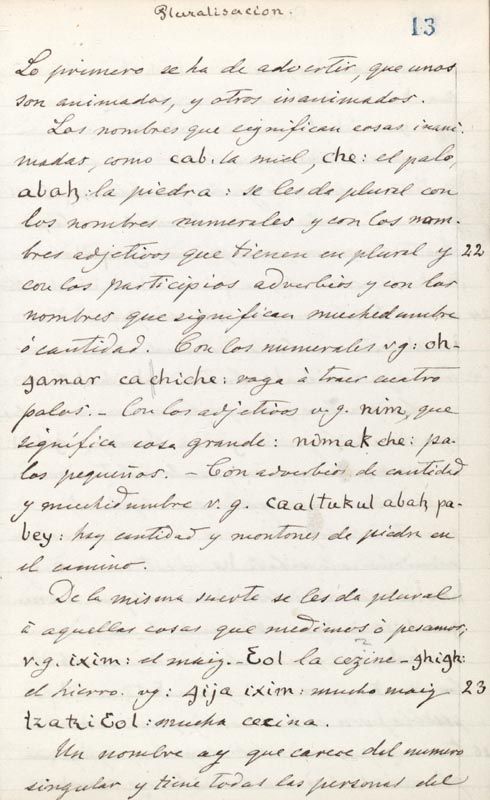 Pluralisacion.
13
Lo primero se ha de advertir, que unos
son animados, y otros inanimados.
Los nombres que significan cosas inani-
madas, como cab: la miel, che: el palo,
abaꜩ: la piedra: se les da plural con
los nombres numerales y con los nom-
bres adjetivos que tienen en plural y 22
con los participios adverbios y con los
nombres que significan muchedumbre
ó cantidad. Con los numerales vg: oh-
gamar cachiche: vaga à traer cuatro
palos. - Con los adjetivos v.g. nim, que
significa cosa grande: nimak che: pa-
los pequeños. - Con adverbios de cantidad
y muchedumbre v. g. caaltukul abaꜩ pa-
bey: hay cantidad y montones de piedra en
el camino.
De la misma suerte se les da plural
à aquellas cosas que medimos ò pesamos;
v.g. ixim: el maiz - Ɛol la cezine -
el hierro. vg: gija ixim: mucho maiz 23
Ɛol: mucha cecina.
Un nombre ay que carece del numero
singular y tiene todas las personas del